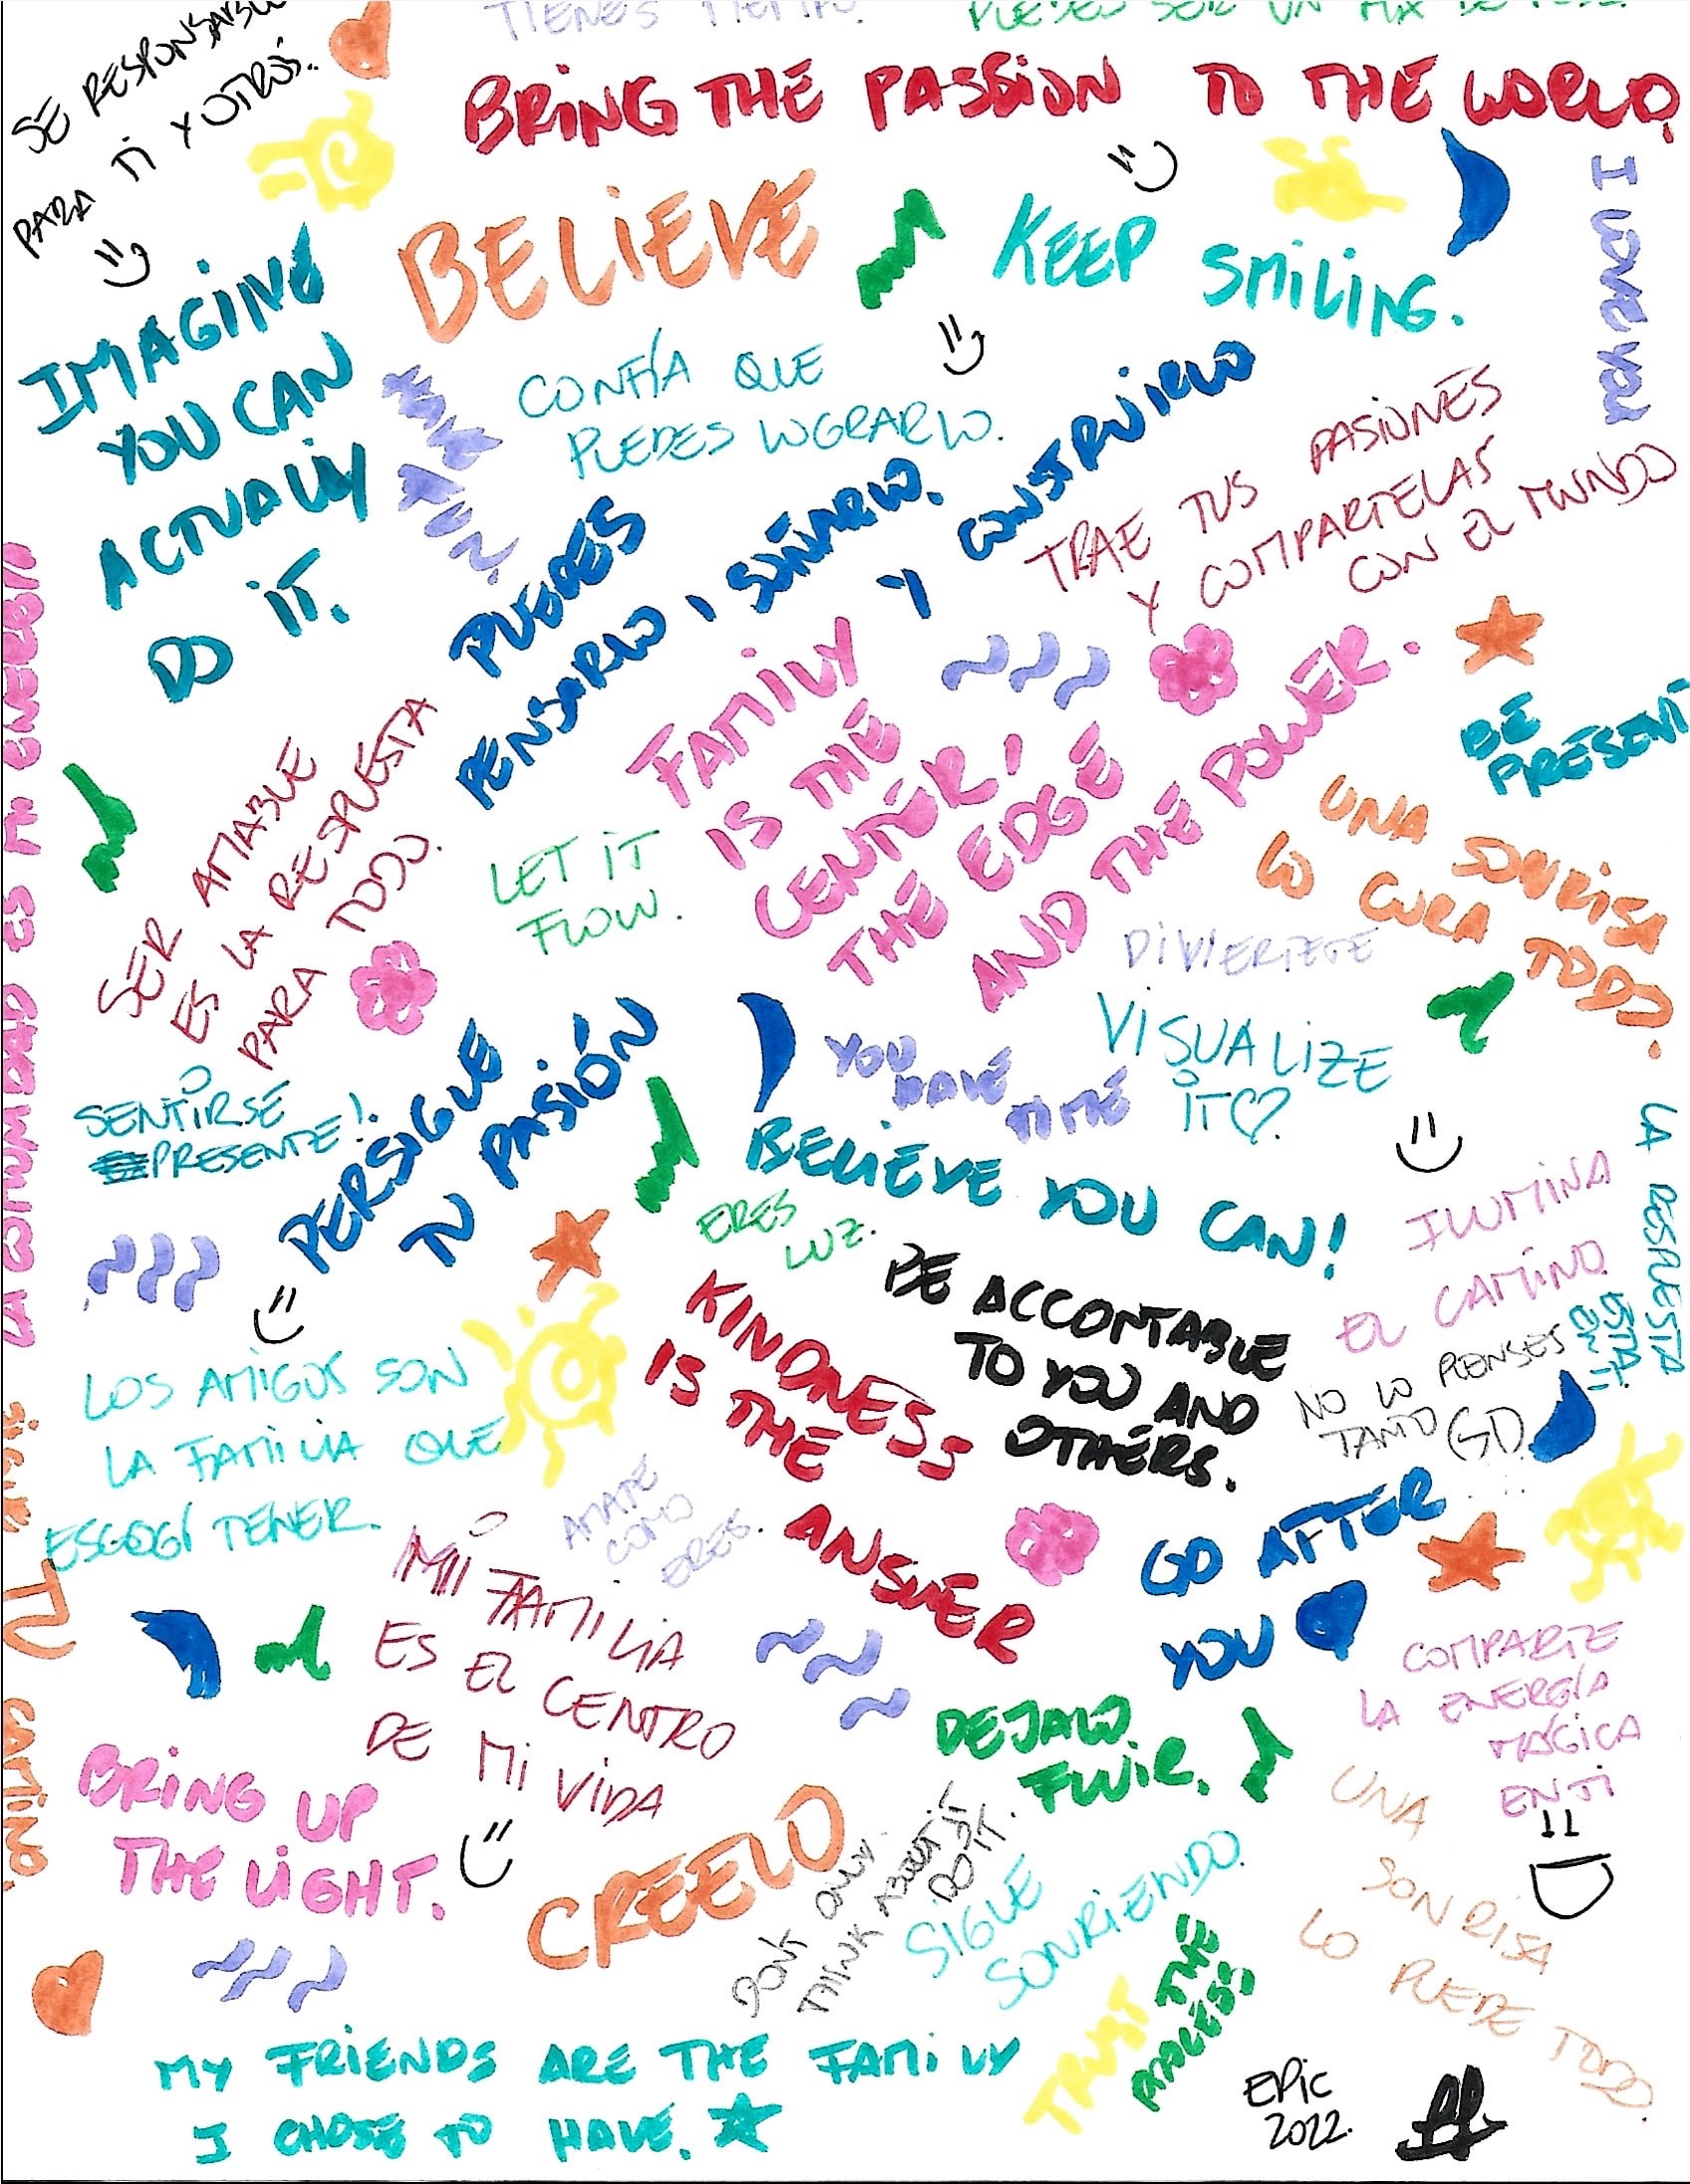 SE RESPONSABLE
PARA TI Y OTROS.
TIENES TIEMPO.
BRING THE PASSION TO THE WORLD.
BELIEVE
KEEP SMILING.
I LOVE YOU
IMAGINE
YOU CAN
ACTUALLY
DO IT.
HAVE
FUN.
CONFÍA QUE
PUEDES LOGRARLO.
PUEDES
PENSARLO, SOÑARLO.
Y CONSTRUIRLO
TRAE TUS PASIONES
Y COMPARTELAS
CON EL MUNDO
LA COMUNIDAD ES MI ENERGIA
FAMILY
IS THE
CENTER!
THE EDGE
AND THE POWER.
BE
PRESENT
UNA SONRISA
LO CURA TODO.
SER AMABLE
ES LA RESPUESTA
PARA TODO.
LET IT
FLOW.
DIVIERTETE
VISUALIZE
IT
YOU
HAVE
TIME
SENTIRSE
PRESENTE!
PERSIGUE
TU PASIÓN
BELIEVE YOU CAN!
ERES
LUZ.
ILUMINA
EL CAMINO
LA RESPUESTA
ESTA
EN TI
BE ACCONTABLE
TO YOU AND
OTHERS.
KINDNESS
IS THE
ANSWER
NO LO PIENSES
TANTO
LOS AMIGOS SON
LA FAMILIA QUE
ESGOGÍ TENER.
AMATE
COMO
ERES.
GO AFTER
YOU
SIGUE
TU
CAMINO.
MI FAMILIA
ES EL CENTRO
DE MI VIDA
COMPARTE
LA ENERGÍA
MÁGICA
EN TI
DEJALO
FLUIR.
BRING UP
THE LIGHT.
CREELO
DONT ONLY
THINK ABOUT IT
DO IT.
SIGUE
SONRIENDO.
UNA
SONRISA
LO PUEDE TODO.
TRUST THE
PROCESS
MY FRIENDS ARE THE FAMILY
I CHOSE TO HAVE.
EPIC
2022.